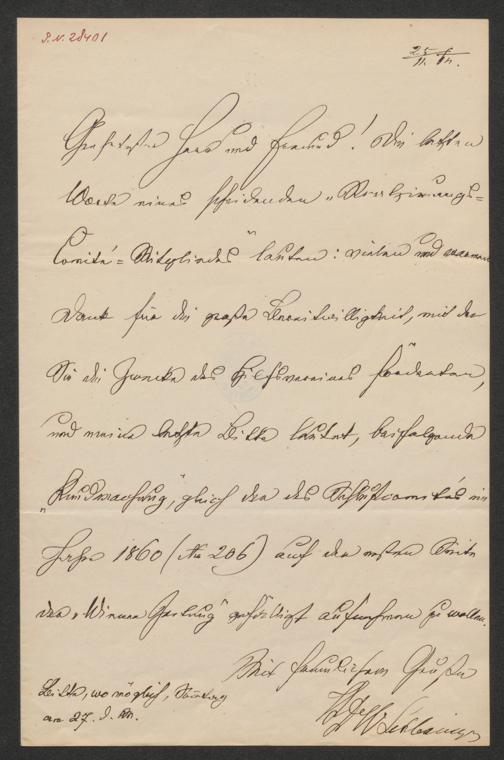 I.N. 28401
25/11.
Geehrtester Herr und Freund! Die letzten
Worte eines scheidenden „Realisirungs-
Comité-Mitgliedes" lauten: vielen und warmen
Dank für die große Bereitwilligkeit, mit der
Sie die Zwecke des Hilfsvereines förderten,
und meine letzte Bitte lautet, beifolgende
„Kundmachung", gleich der des Hilfscomités im
Jahre 1860 (No 206) auf der ersten Seite
der „Wiener Zeitung" gefälligst aufnehmen zu wollen.
Mit freundlichem Gruße
Bitte, wo möglich, Sonntag
am 27. d. M.
Schlesinger